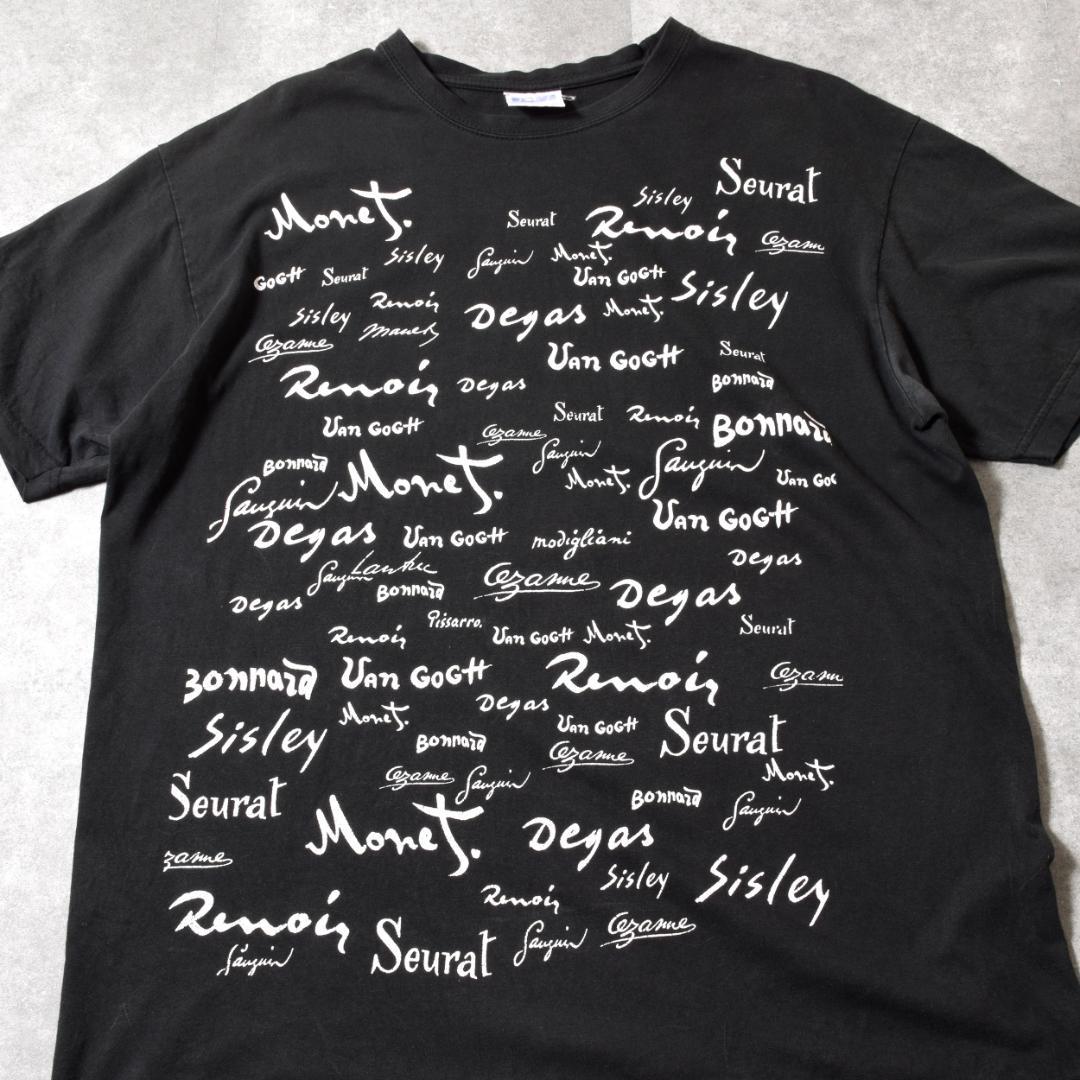 Seurat
Sisley
Monet.
Seurat Renoir Cezanne
Sisley Gauguin Monet.
GOGH Seurat Van GOGH Sisley
Sisley Renoir Degas Monet.
Cezanne Manet
Van GOGH Seurat
Renoir Degas Bonnard
Van GOGH Cezanne Seurat Renoir Bonnard
Gauguin
Bonnard Monet. Monet. Gauguin Van GOG
Gauguin
Degas Van GOGH modigliani Van GOGH
Degas
Gauguin Lautrec Cezanne
Degas Bonnard Degas
Pissarro.
Renoir Van GOGH Monet. Seurat
Bonnard Van GOGH Renoir Cezann
Degas
Sisley Monet. Van GOGH Seurat
Bonnard Cezanne
Cezanne Gauguin Monet.
Seurat Bonnard Gauguin
Monet. Degas
zanne
Sisley Sisley
Renoir Renoir
Gauguin Seurat Gauguin Cezanne